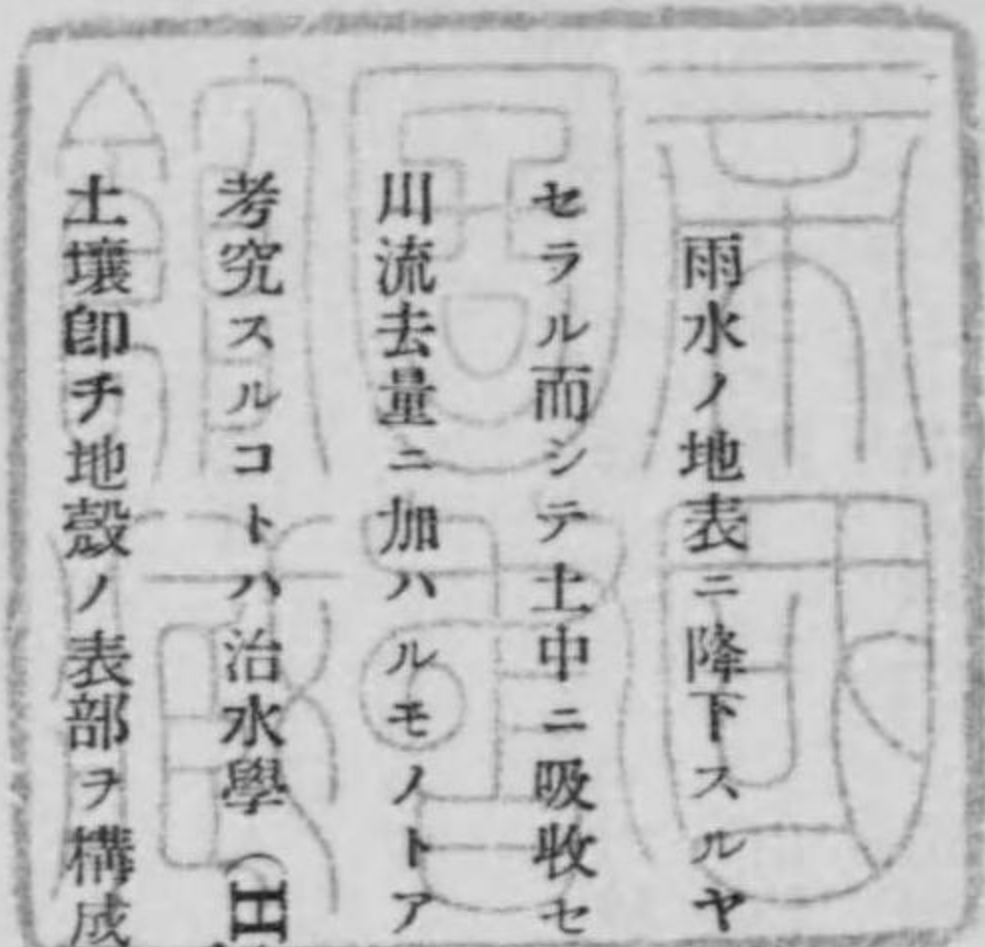 雨水ノ地表ニ降下スルヤ
セラル而シテ土中ニ吸收セ
川流去量ニ加ハルモノトア
考究スルコトハ治水學（H
土壤卽チ地殼ノ表部ヲ構成